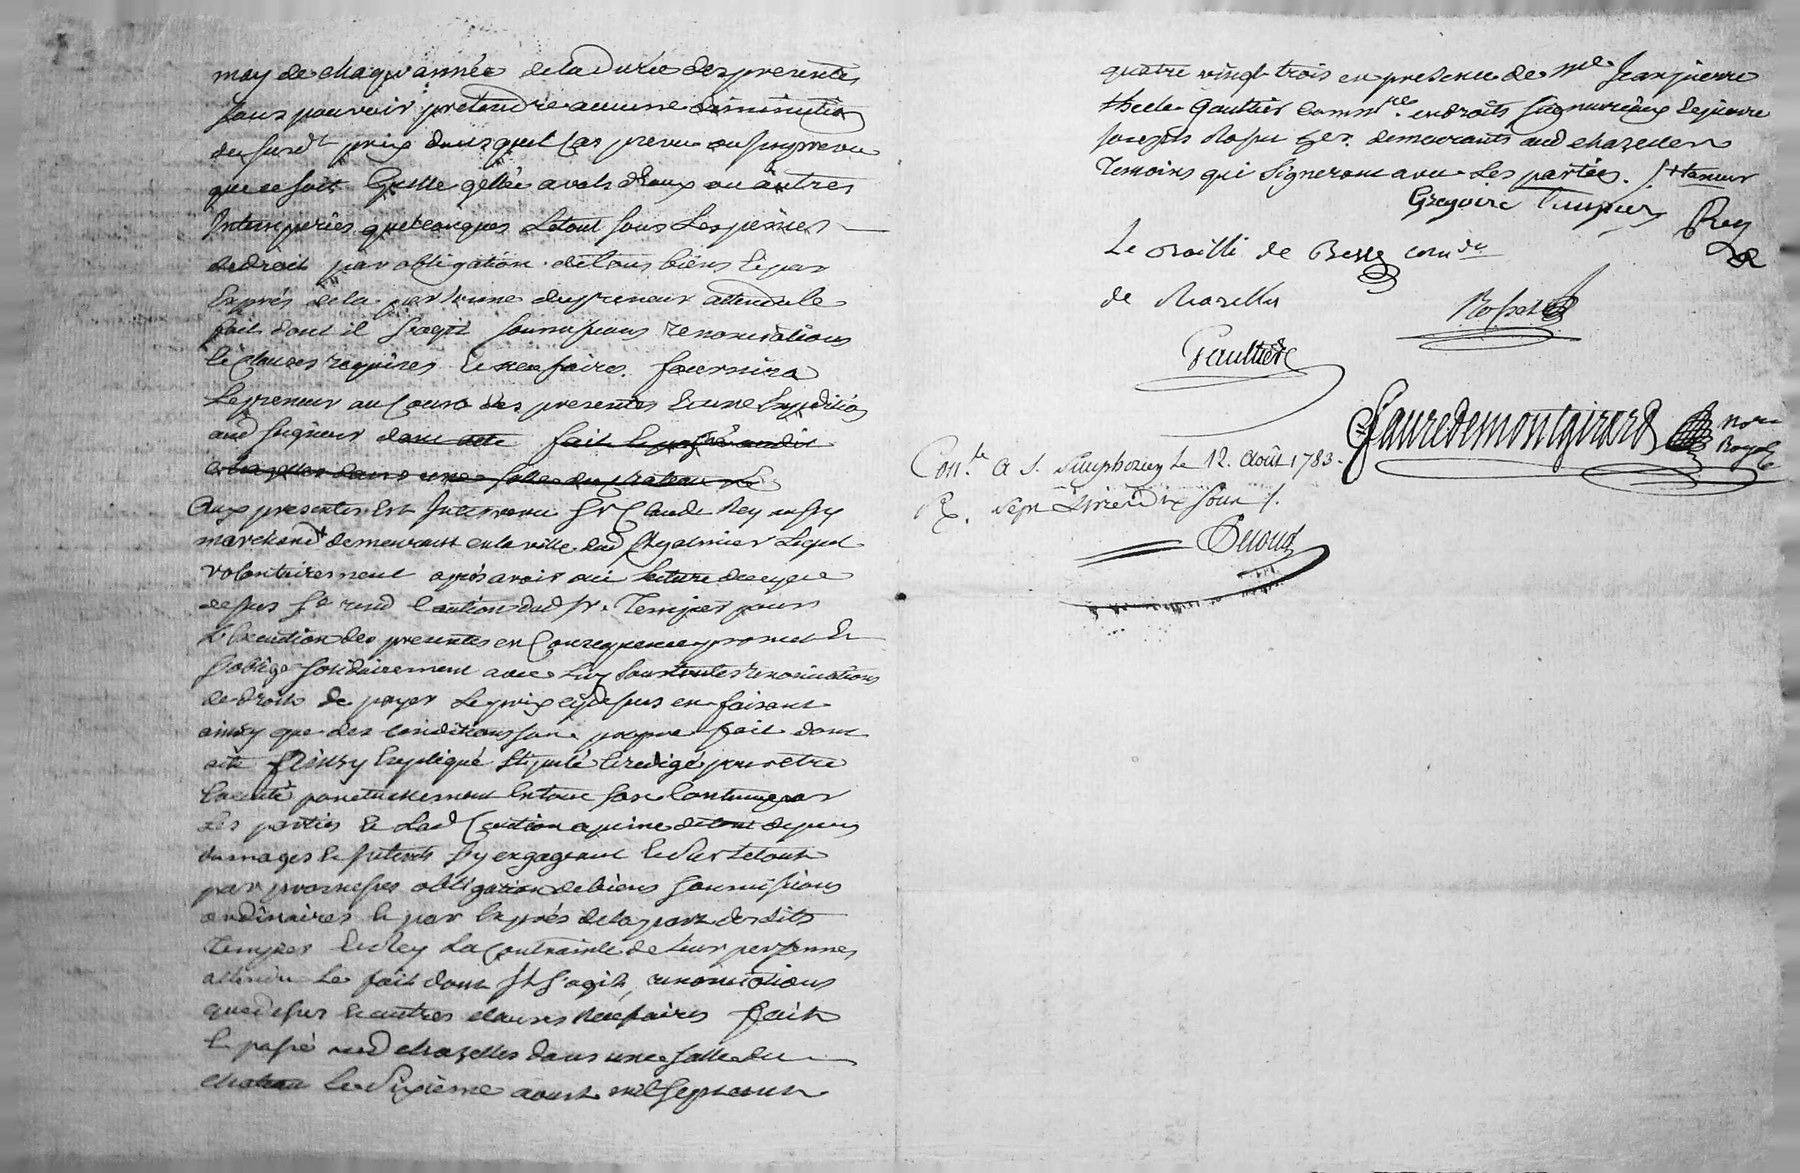 may de chaque année de la durée des presentes
sans pouvoir pretendre aucune diminution
du susdt prix dans quel cas prevu ou impreveu
que ce soit Gresle gellée avals d'eaux ou autres
Intemperies quelconques Le tout sous Les peines
de droit par obligation de tous biens & par
Exprés de la personne du preneur attendu le
fait dont il s'agit soumissions renonciations
& clauses requises & necessaires. fournira
Le preneur au Cours des presentes & une Expedition
aud seigneur dont acte fait & passé audit
chazelles dans une salle du chateau Le
Aux presentes Est Intervenu Sr Claude Rey
marchand demeurant en la ville dud Chyalmier Lequel
volontairement après avoir oui Lecture de ce que
dessus Se rend Caution dud Sr. Tempier pour
L'Execution des presentes en Consequence promet &
s'oblige solidairement avec Luy sous toutes renonciations
de droits de payer Le prix cy dessus en faisant
ainsy que des Conditions son propre fait dont
acte Ainsy Expliqué Stipulé & redigé pour etre
Executé ponctuellement En tout son Contenu par
Les parties & Lad Caution a peine de tous depens
dommages & Interets s'y engageant & sur Le tout
par promesses obligation de biens soumissions
ordinaires & par Exprés de la part desdits
Tempier & Rey La Contrainte de Leur personnes
attendu Le fait dont Il s'agit, renonciations
que dessus & autres clauses necessaires fait
& passé aud chazelles dans une salle du
chateau Le Sixieme aoust mil sept cent
quatre vingt trois en presence de me Jean pierre
thecle Gaultier Commre. en droits seigneuriaux & pierre
françois Rosset demeurants aud chazelles
Temoins qui Signeront avec Les parties.
Gregoire Tempier Rey
Le Bailli de Besse comdr
de Chazelles
Rosset
Gaultier
Fauredemontgirard notre
Royal
Conlé a S. Simphorien Le 12. Août 1783.
R. sept Livres dix sous
Denoud